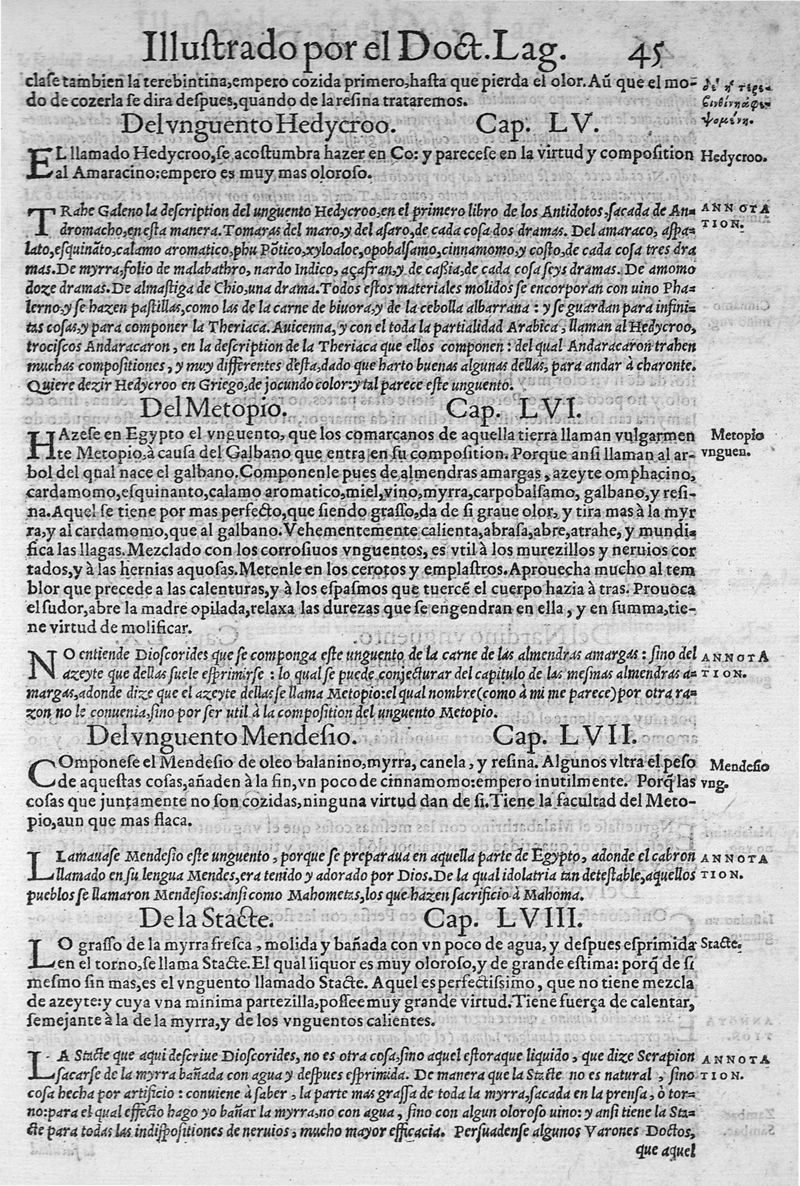 Illustrado por el Doct. Lag. 45
clase tambien la terebintina, empero cozida primero, hasta que pierda el olor. Aũ que el mo-
do de cozerla se dira despues, quando de la resina trataremos.
Del vnguento Hedycroo. Cap. LV.
EL llamado Hedycroo, se acostumbra hazer en Co: y parecese en la virtud y composition
al Amaracino: empero es muy mas oloroso.
Hedycroo.
TRahe Galeno la description del unguento Hedycroo, en el primero libro de los Antidotos, sacada de An-
dromacho, en esta manera. Tomaras del maro, y del asaro, de cada cosa dos dramas. Del amaraco, aspa-
lato, esquinãto, calamo aromatico, phu Põtico, xyloaloe, opobalsamo, cinnamomo, y costo, de cada cosa tres dra
mas. De myrra, folio de malabathro, nardo Indico, açafran, y de caßia, de cada cosa seys dramas. De amomo
doze dramas. De almastiga de Chio, una drama. Todos estos materiales molidos se encorporan con uino Pha-
lerno, y se hazen pastillas, como las de la carne de biuora, y de la cebolla albarrana: y se guardan para infini-
tas cosas, y para componer la Theriaca. Auicenna, y con el toda la partialidad Arabica, llaman al Hedycroo,
trociscos Andaracaron, en la description de la Theriaca que ellos componen: del qual Andaracaron trahen
muchas compositiones, y muy differentes d'esta, dado que harto buenas algunas dellas, para andar à charonte.
Quiere dezir Hedycroo en Griego, de jocundo color: y tal parece este unguento.
ANNOTA
TION.
Del Metopio. Cap. LVI.
HAzese en Egypto el vnguento, que los comarcanos de aquella tierra llaman vulgarmen
te Metopio, à causa del Galbano que entra en su composition. Porque ansi llaman al ar-
bol del qual nace el galbano. Componenle pues de almendras amargas, azeyte omphacino,
cardamomo, esquinanto, calamo aromatico, miel, vino, myrra, carpobalsamo, galbano, y resi-
na. Aquel se tiene por mas perfecto, que siendo grasso, da de si graue olor, y tira mas à la myr
ra, y al cardamomo, que al galbano. Vehementemente calienta, abrasa, abre, atrahe, y mundi-
fica las llagas. Mezclado con los corrosiuos vnguentos, es vtil à los murezillos y neruios cor
tados, y à las hernias aquosas. Metenle en los cerotos y emplastros. Aprouecha mucho al tem
blor que precede a las calenturas, y à los espasmos que tuercẽ el cuerpo hazia à tras. Prouoca
el sudor, abre la madre opilada, relaxa las durezas que se engendran en ella, y en summa, tie-
ne virtud de molificar.
Metopio
vnguen.
NO entiende Dioscorides que se componga este unguento de la carne de las almendras amargas: sino del
azeyte que dellas suele esprimirse: lo qual se puede conjecturar del capitulo de las mesmas almendras a-
margas, adonde dize que el azeyte dellas se llama Metopio: el qual nombre (como à mi me parece) por otra ra-
zon no le conuenia, sino por ser util à la composition del unguento Metopio.
ANNOTA
TION.
Del vnguento Mendesio. Cap. LVII.
COmponese el Mendesio de oleo balanino, myrra, canela, y resina. Algunos vltra el peso
de aquestas cosas, añaden à la fin, vn poco de cinnamomo: empero inutilmente. Porq̃ las
cosas que juntamente no son cozidas, ninguna virtud dan de si. Tiene la facultad del Meto-
pio, aun que mas flaca.
Mendesio
vng.
LLamauase Mendesio este unguento, porque se preparaua en aquella parte de Egypto, adonde el cabron
llamado en su lengua Mendes, era tenido y adorado por Dios. De la qual idolatria tan detestable, aquellos
pueblos se llamaron Mendesios: ansi como Mahometas, los que hazen sacrificio à Mahoma.
ANNOTA
TION.
De la Stacte. Cap. LVIII.
LO grasso de la myrra fresca, molida y bañada con vn poco de agua, y despues esprimida
en el torno, se llama Stacte. El qual liquor es muy oloroso, y de grande estima: porq̃ de si
mesmo sin mas, es el vnguento llamado Stacte. Aquel es perfectissimo, que no tiene mezcla
de azeyte: y cuya vna minima partezilla, possee muy grande virtud. Tiene fuerça de calentar,
semejante à la de la myrra, y de los vnguentos calientes.
Stacte.
LA Stacte que aqui descriue Dioscorides, no es otra cosa, sino aquel estoraque liquido, que dize Serapion
sacarse de la myrra bañada con agua y despues esprimida. De manera que la Stacte no es natural, sino
cosa hecha por artificio: conuiene à saber, la parte mas grassa de toda la myrra, sacada en la prensa, ò tor-
no: para el qual effecto hago yo bañar la myrra, no con agua, sino con algun oloroso uino: y ansi tiene la Sta-
cte para todas las indispositiones de neruios, mucho mayor efficacia. Persuadense algunos Varones Doctos,
que aquel
ANNOTA
TION.